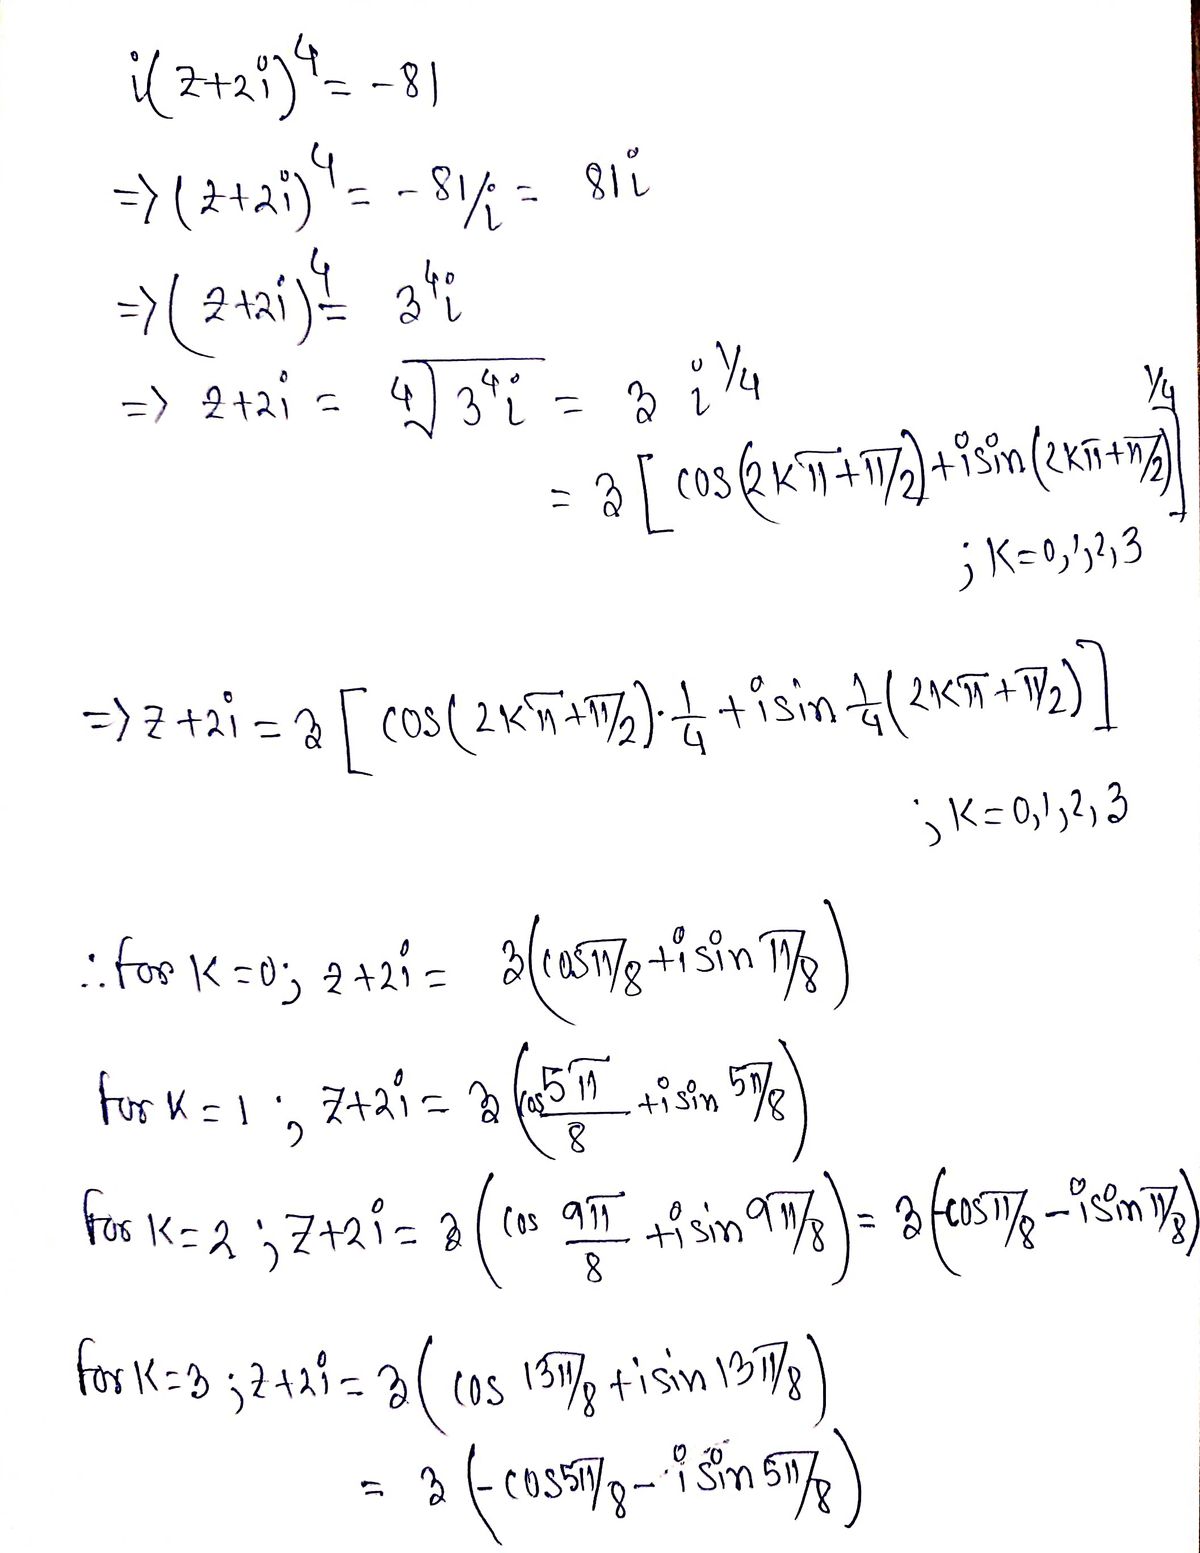 i(z+2i)⁴ = -81
=> (z+2i)⁴ = -81/i = 81i
=> (z+2i)⁴ = 3⁴i
=> z+2i = ∜(3⁴i) = 3 i^(1/4)
= 3 [cos(2kπ+π/2)+isin(2kπ+π/2)]^(1/4)
; K=0,1,2,3
=> z+2i = 3 [cos(2kπ+π/2)·1/4 + isin 1/4 (2kπ+π/2)]
; K=0,1,2,3
∴ for K=0; z+2i = 3(cosπ/8 + isin π/8)
for K=1; z+2i = 3(cos 5π/8 + isin 5π/8)
for K=2; z+2i = 3(cos 9π/8 + isin 9π/8) = 3(-cosπ/8 - isin π/8)
for K=3; z+2i = 3(cos 13π/8 + isin 13π/8)
= 3(-cos5π/8 - isin 5π/8)